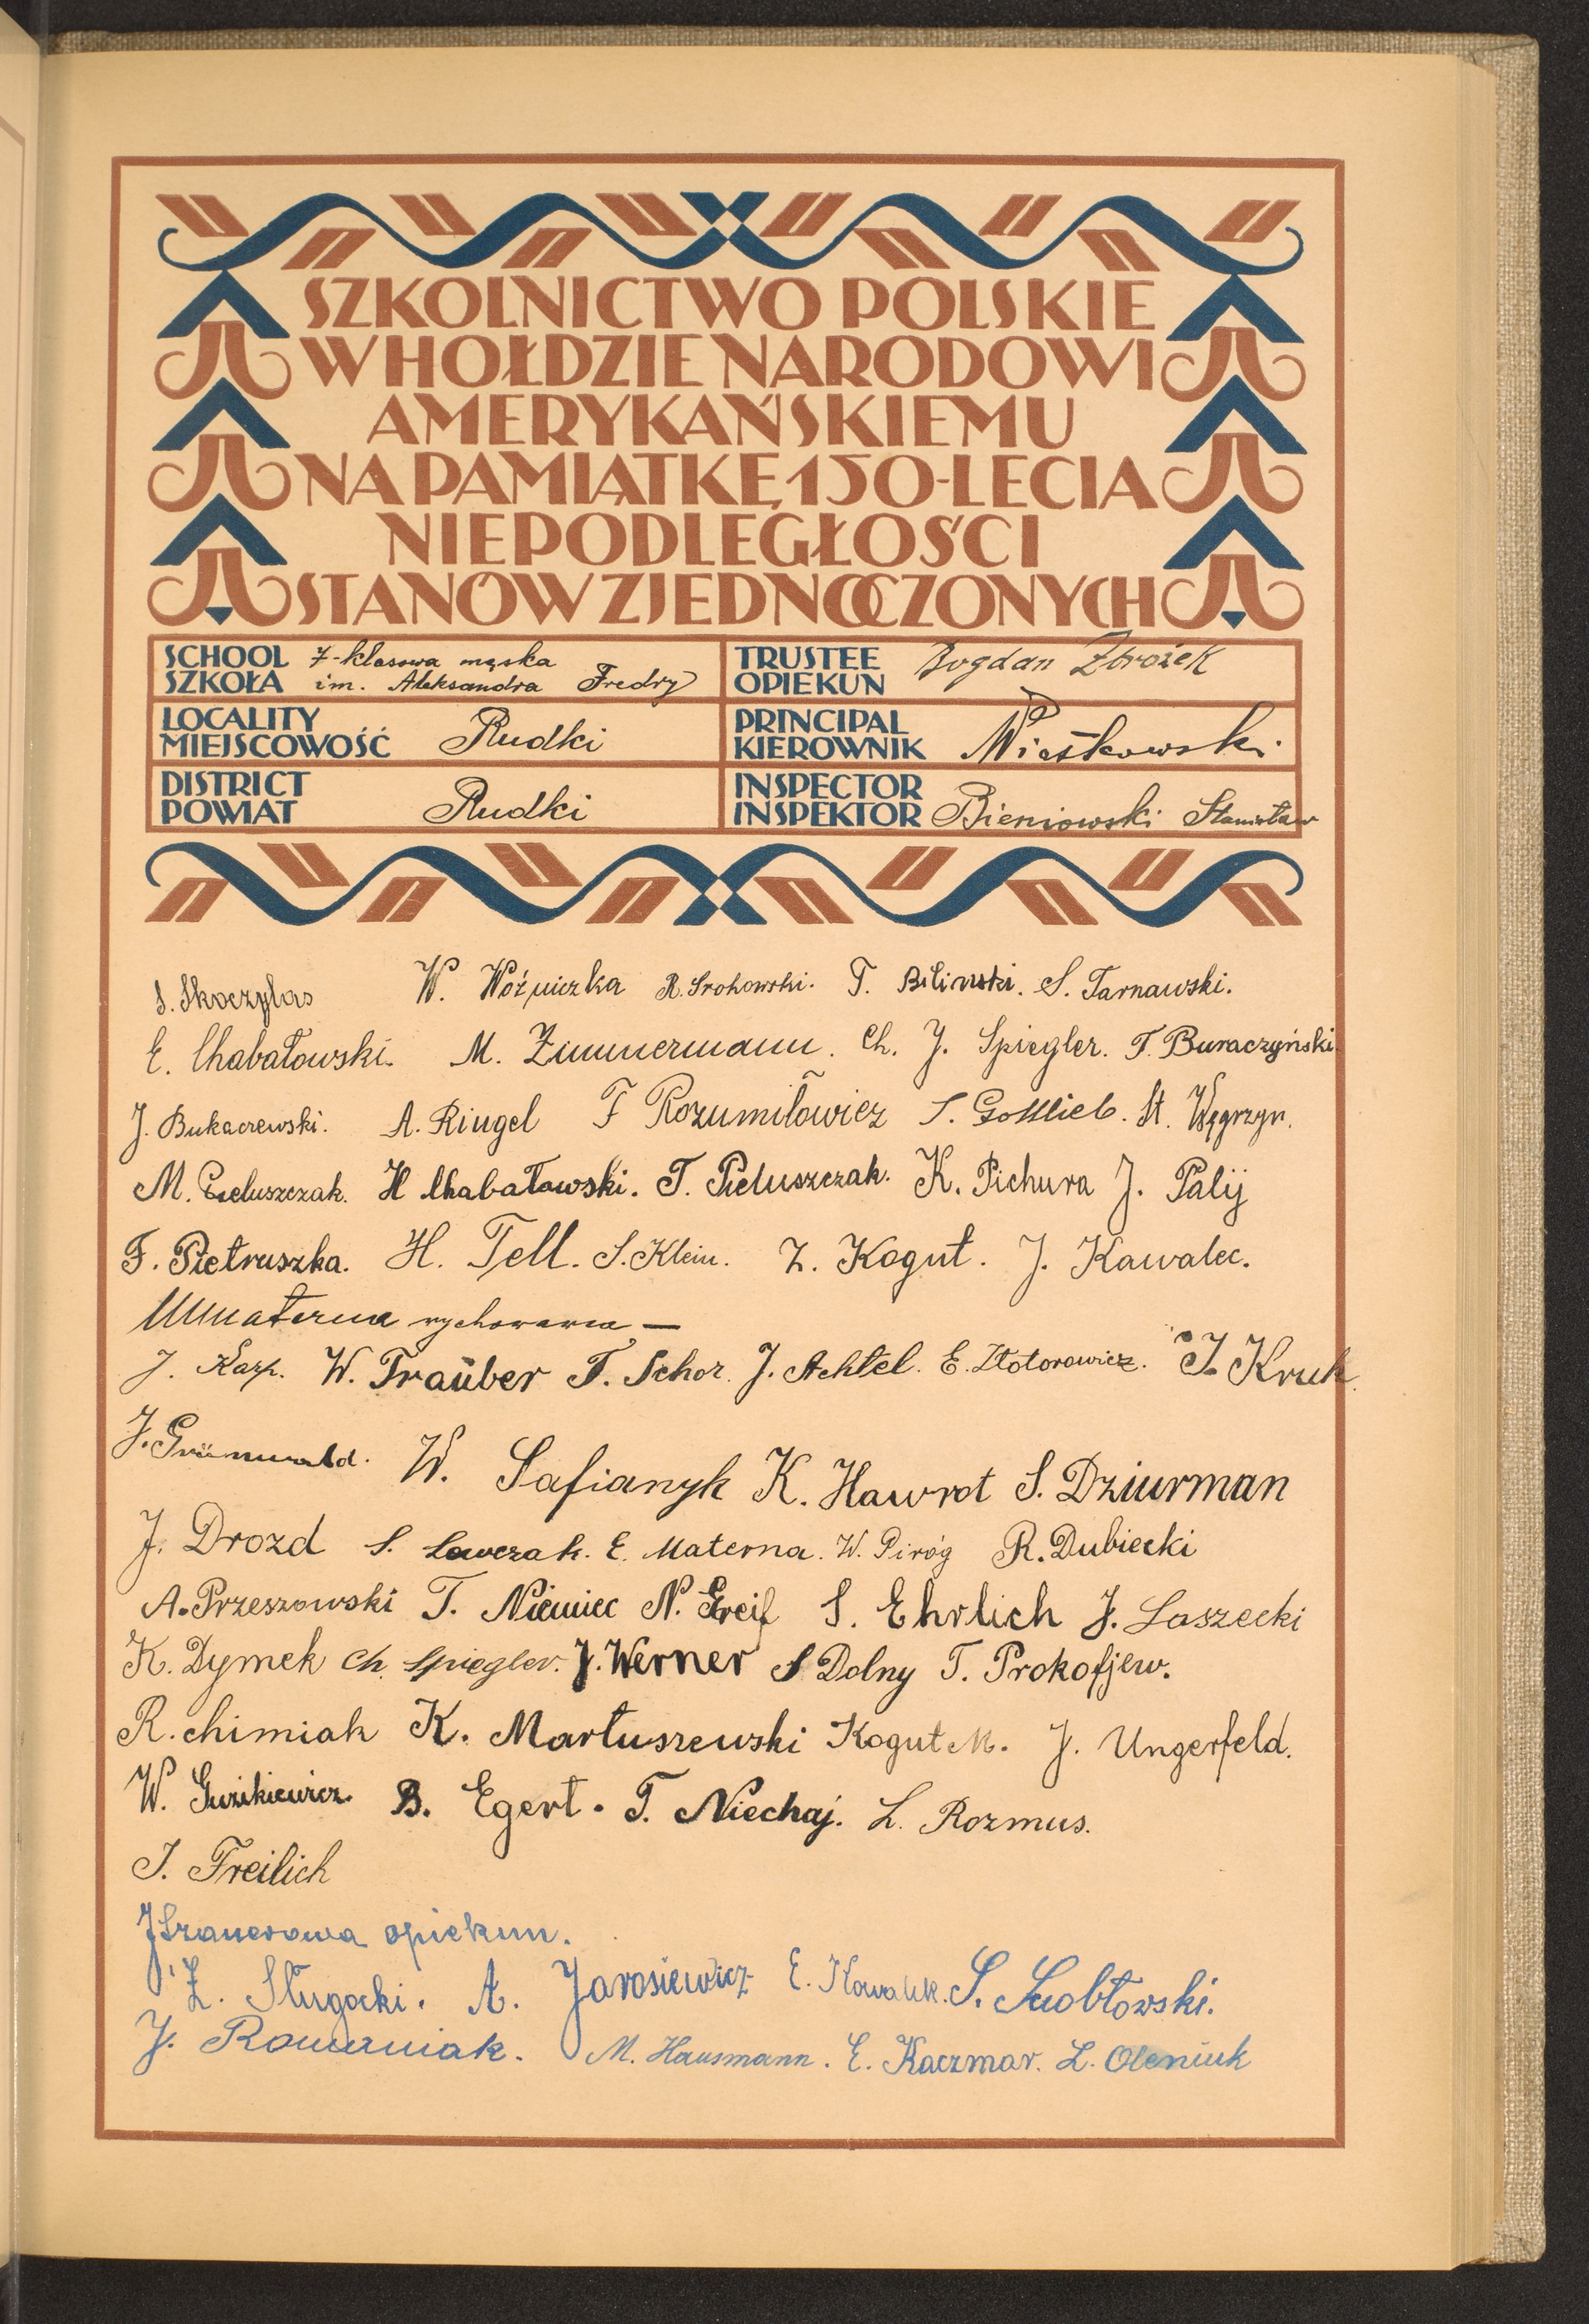 SZKOLNICTWO POLSKIE
W HOŁDZIE NARODOWI
AMERYKAŃSKIEMU
NA PAMIĄTKĘ 150-LECIA
NIEPODLEGŁOŚCI
STANÓW ZJEDNOCZONYCH
SCHOOL SZKOŁA 7-klasowa męska im. Aleksandra Fredry
TRUSTEE OPIEKUN Bogdan Zbrożek
LOCALITY MIEJSCOWOŚĆ Rudki
PRINCIPAL KIEROWNIK
DISTRICT POWIAT Rudki
INSPECTOR INSPEKTOR Bieniowski Stanisław
S. Skoczylas W. Woźniczka R. Srokowski. T. Biliński. S. Tarnawski.
E. Chabałowski. M. Zimmermann. Ch. J. Spiegler. T. Buraczyński
J. Bukaczewski. A. Ringel F Rozumiłowicz S. Gottlieb. St. Węgrzyn.
M. Cieluszczak. H Chabałowski. T. Pieluszczak. K. Pichura J. Palij
F. Pietruszka. H. Tell. S. Klein. Z. Kogut. J. Kawalec.
wychowawca —
J. Karp. W. Traüber T. Schor. J. Achtel. E. Złotorowicz. J. Kruk.
J. Grünwald. W. Safianyk K. Hawrot S. Dziurman
J. Drozd S. Ławczak. E. Materna. W. Piróg R. Dubiecki
A. Przeszowski T. Niemiec N. Greif S. Ehrlich J. Laszecki
K. Dymek Ch. Spiegler. J. Werner S Dolny T. Prokofjew.
R. chimiak K. Martuszewski Kogut M. J. Ungerfeld.
W. Guzikiewicz. B. Egert. T. Niechaj. L. Rozmus.
J. Freilich
opiekun.
Z. Sługocki. A. Jarosiewicz E. Kowalek. S.
J. Romaniak. M. Hausmann. E. Kaczmar. L. Oleniuk